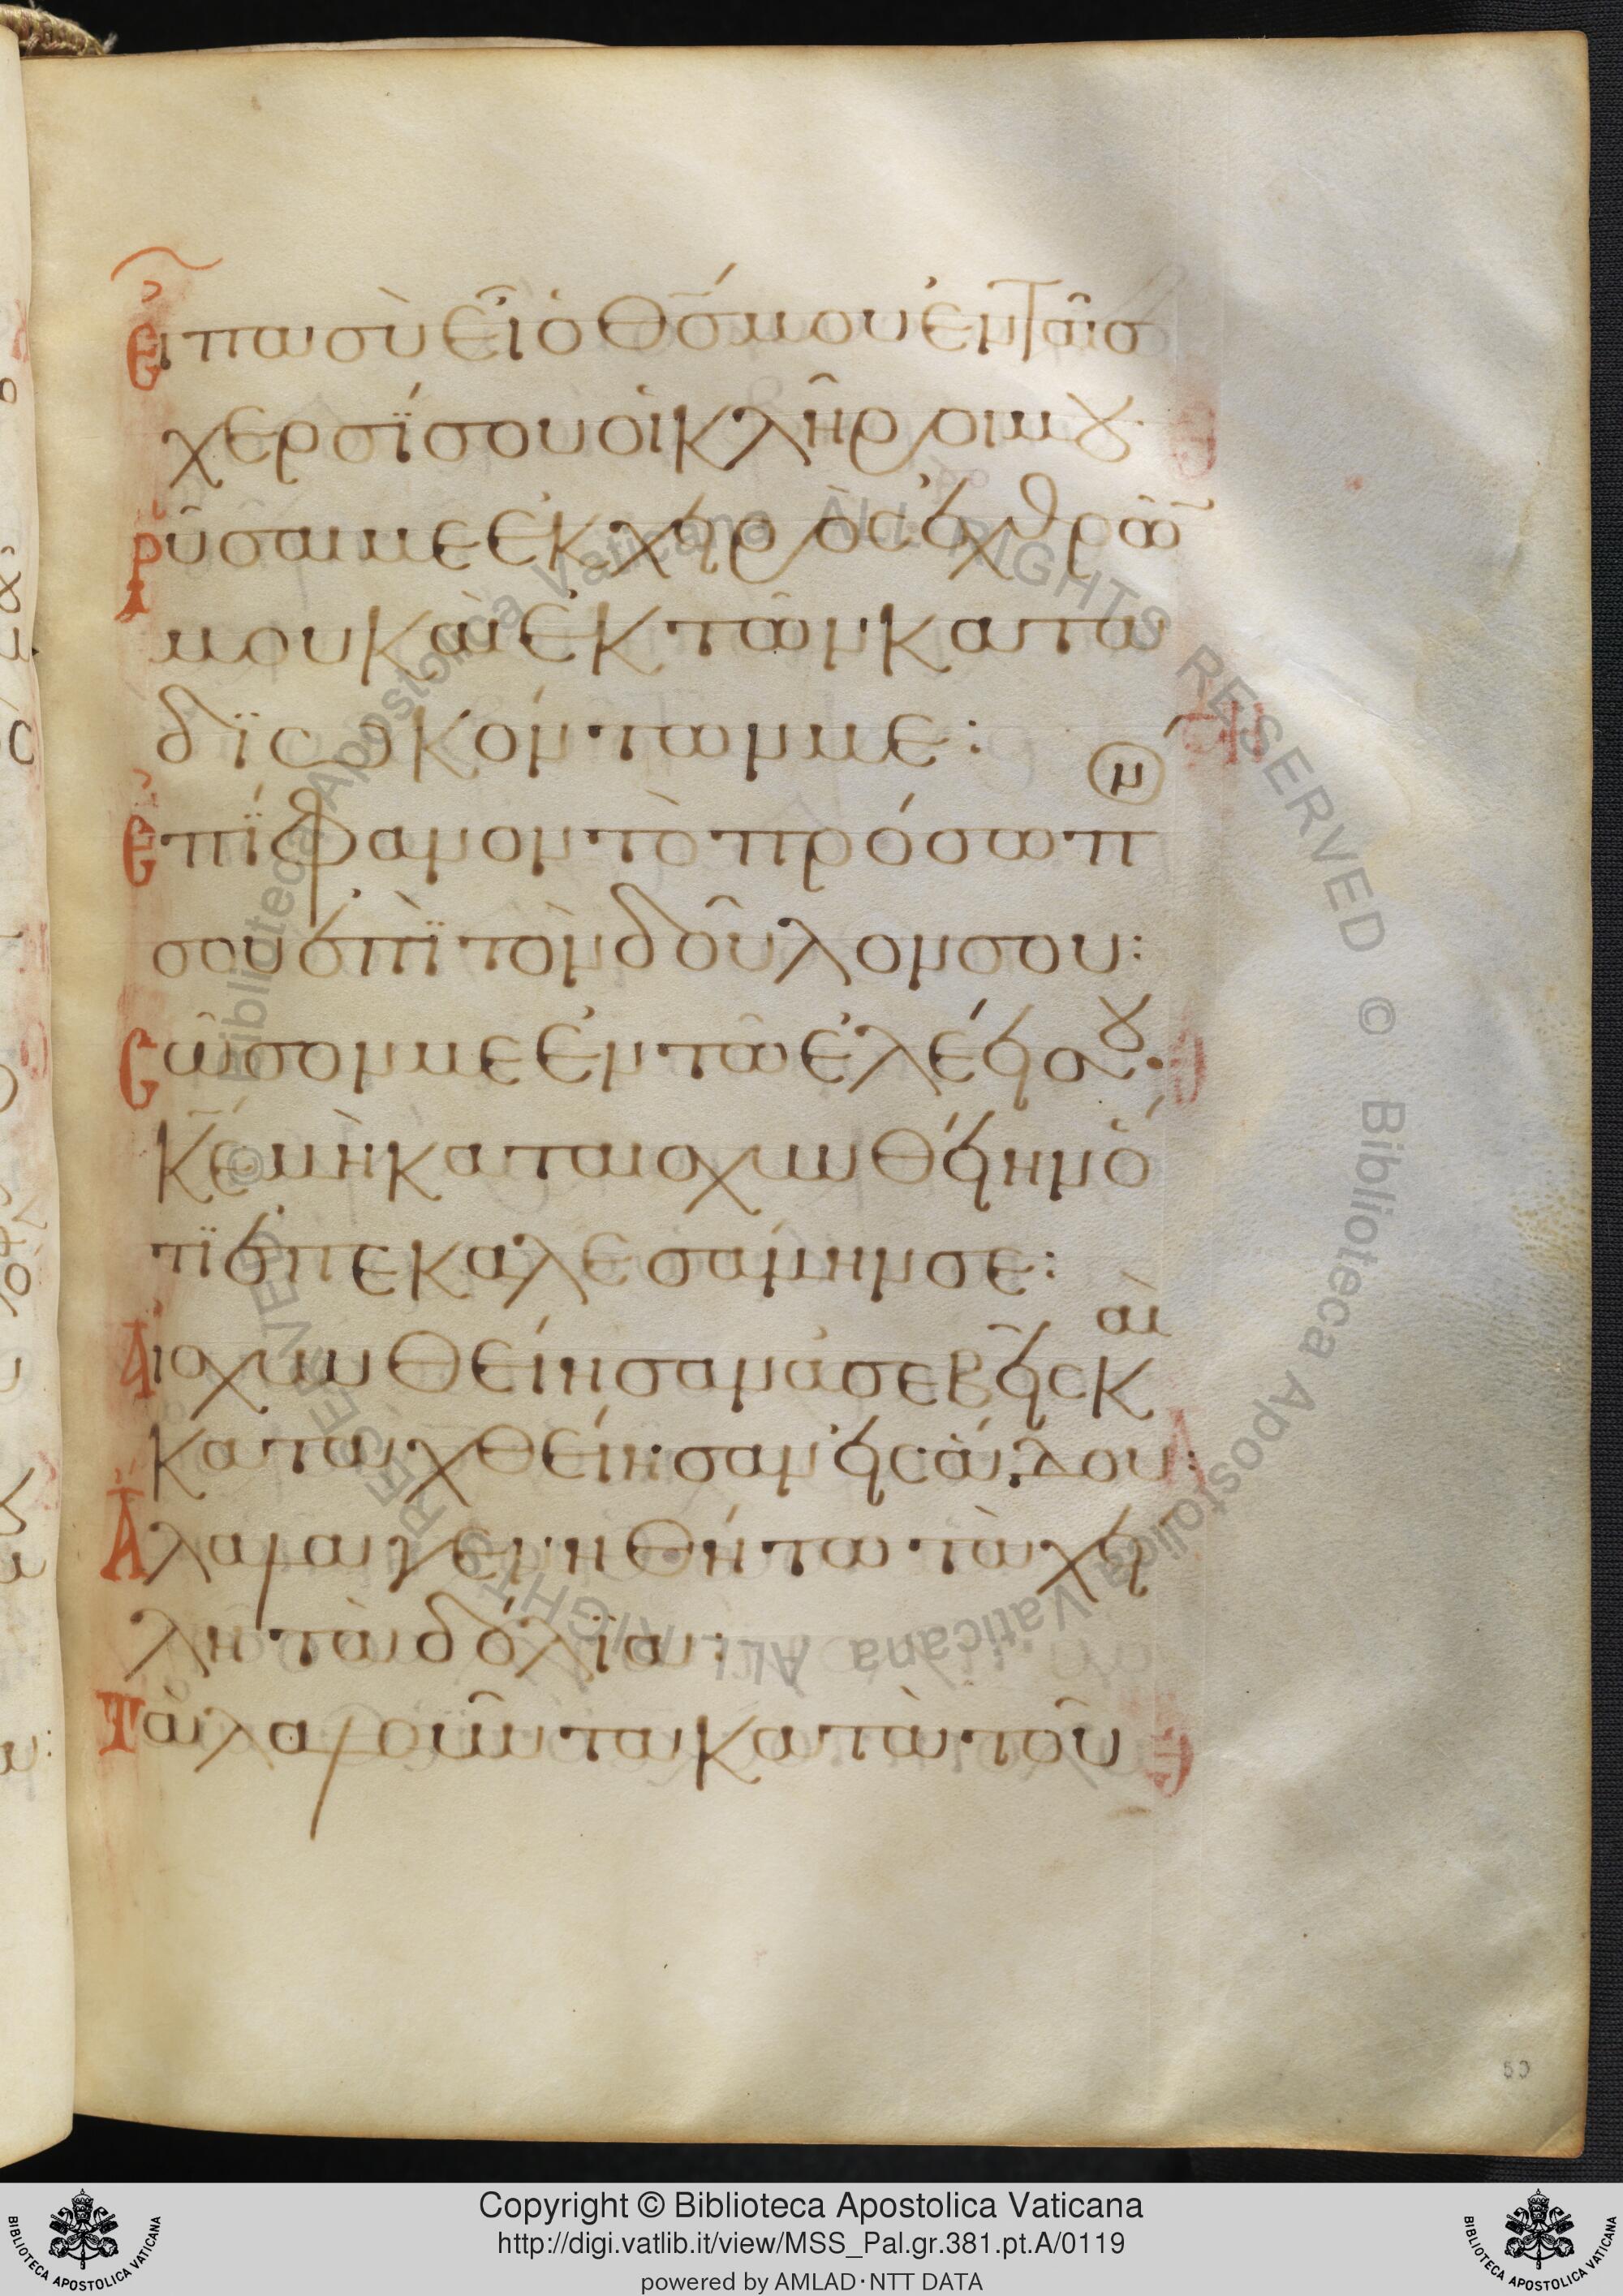 Εἶπα σὺ εἶ ὁ θ̅ς̅ μου ἐν ταῖς
χερσΐ σου οἱ κλῆροι μου·
Ρῦσαι με ἐκ χειρὸς ἐχθρῶ̅
μου καὶ ἐκ τῶν κατα
δϊωκόντων με:
Ἐπίφανον τὸ πρόσωπ(ν)
σου ἐπὶ τὸν δοῦλον σου:
Cῶσον με ἐν τῶ ἐλέει σου·
κ̅ε̅ μὴ καταισχυνθείην ὅ
τϊ ἐπεκαλεσάμην σε:
Αἰσχυνθείησαν ἀσεβεῖς κ αὶ
καταχθείησαν εἰς ἅδου:
Ἄλαλα γενηθήτω τὰ χεί
λη τὰ δόλϊα:
Τὰ λαλοῦντα κατὰ τοῦ
50
Copyright © Biblioteca Apostolica Vaticana
http://digi.vatlib.it/view/MSS_Pal.gr.381.pt.A/0119
powered by AMLAD·NTT DATA
BIBLIOTECA APOSTOLICA VATICANA
BIBLIOTECA APOSTOLICA VATICANA
© Biblioteca Apostolica Vaticana ALL RIGHTS RESERVED
© Biblioteca Apostolica Vaticana ALL RIGHTS RESERVED